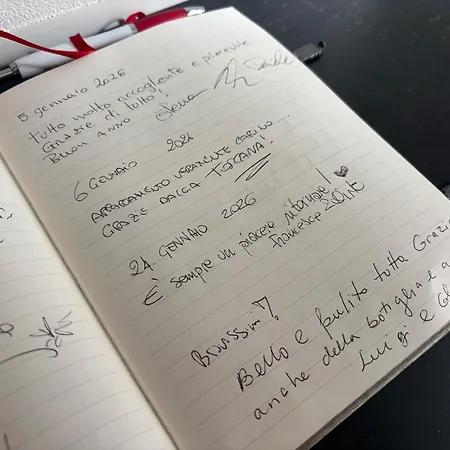 5 gennaio 2026
Tutto molto accogliente e piacevole
Grazie di tutto!
Buon Anno Elena Davide
6 GENNAIO 2026
APPARTAMENTO VERAMENTE CARINO....
GRAZIE DALLA TOSCANA!
24 GENNAIO 2026
È sempre un piacere ritornare!
Francesca
Bravissimi!
Bello e pulito tutto Grazie
anche della bottiglia e
Luigi e